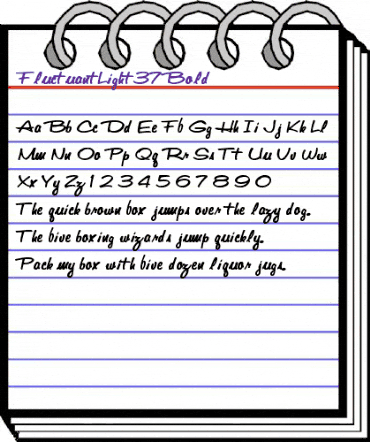 FluctuantLight37 Bold
Aa Bb Cc Dd Ee Fb Gg Hh Ii Jj Kk Ll
Mm Nn Oo Pp Qq Rr Ss Tt Uu Vv Ww
Xx Yy Zz 1 2 3 4 5 6 7 8 9 0
The quick brown box jumps over the lazy dog.
The bive boxing wizards jump quickly.
Pack my box with bive dozen liquor jugs.